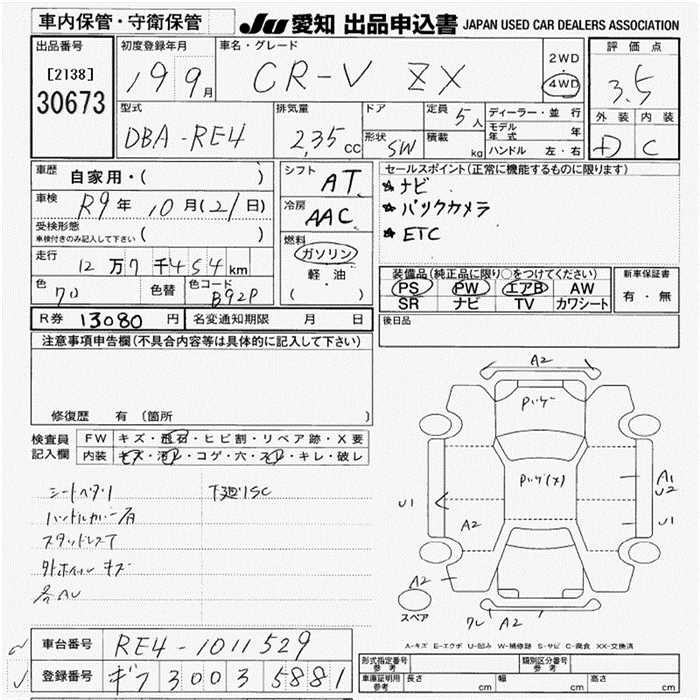 車内保管・守衛保管
JU 愛知 出品申込書 JAPAN USED CAR DEALERS ASSOCIATION
出品番号
[2138]
30673
初度登録年月
19 9月
車名・グレード
CR-V ZX
2WD
・
4WD
評価点
3.5
外装 内装
D C
型式
DBA-RE4
排気量
2,35 CC
ドア
形状 SW
定員 5人
積載 kg
ディーラー・並行
モデル年式 年
ハンドル 左・右
車歴
自家用・( )
車検
R9年 10月(21日)
受検形態
車検付きのみ記入して下さい ( )
走行
12万7千454km
色 色替 色コード
クロ B92P
シフト
AT
冷房
AAC
燃料
ガソリン
軽・油
( )
セールスポイント(正常に機能するものに限ります)
★ナビ
★バックカメラ
★ETC
装備品(純正品に限り○をつけてください)
PS PW エアB AW
SR ナビ TV カワシート
新車保証書
有・無
R券 13080円 名変通知期限 月 日
後日品
注意事項申告欄(不具合内容等は具体的に記入して下さい)
修復歴 有 (箇所 )
検査員記入欄
FW キズ・飛石・ヒビ割・リペア跡・X要
内装 キズ・汚レ・コゲ・穴・スレ・キレ・破レ
シートヘタリ
下廻りSC
ハンドルカバー有
スタッドレス
外ホイールキズ
各AU
A2
A1
U2
U1
U1
A2
A2
A2
スペア
A-キズ E-エクボ U-凹み W-補修跡 S-サビ C-腐食 XX-交換済
車台番号 RE4-1011529
登録番号 ギフ 300 3 5881
形式指定番号 参考
類別区分番号 参考
車庫証明用 参考
長さ cm 幅 cm 高さ cm